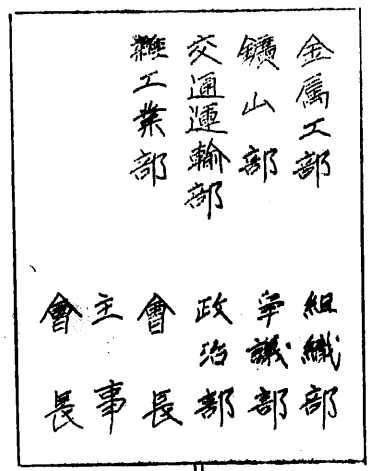 金属工部
鑛山部
交通運輸部
雜工業部
組織部
爭議部
政治部
會長
主事
會長